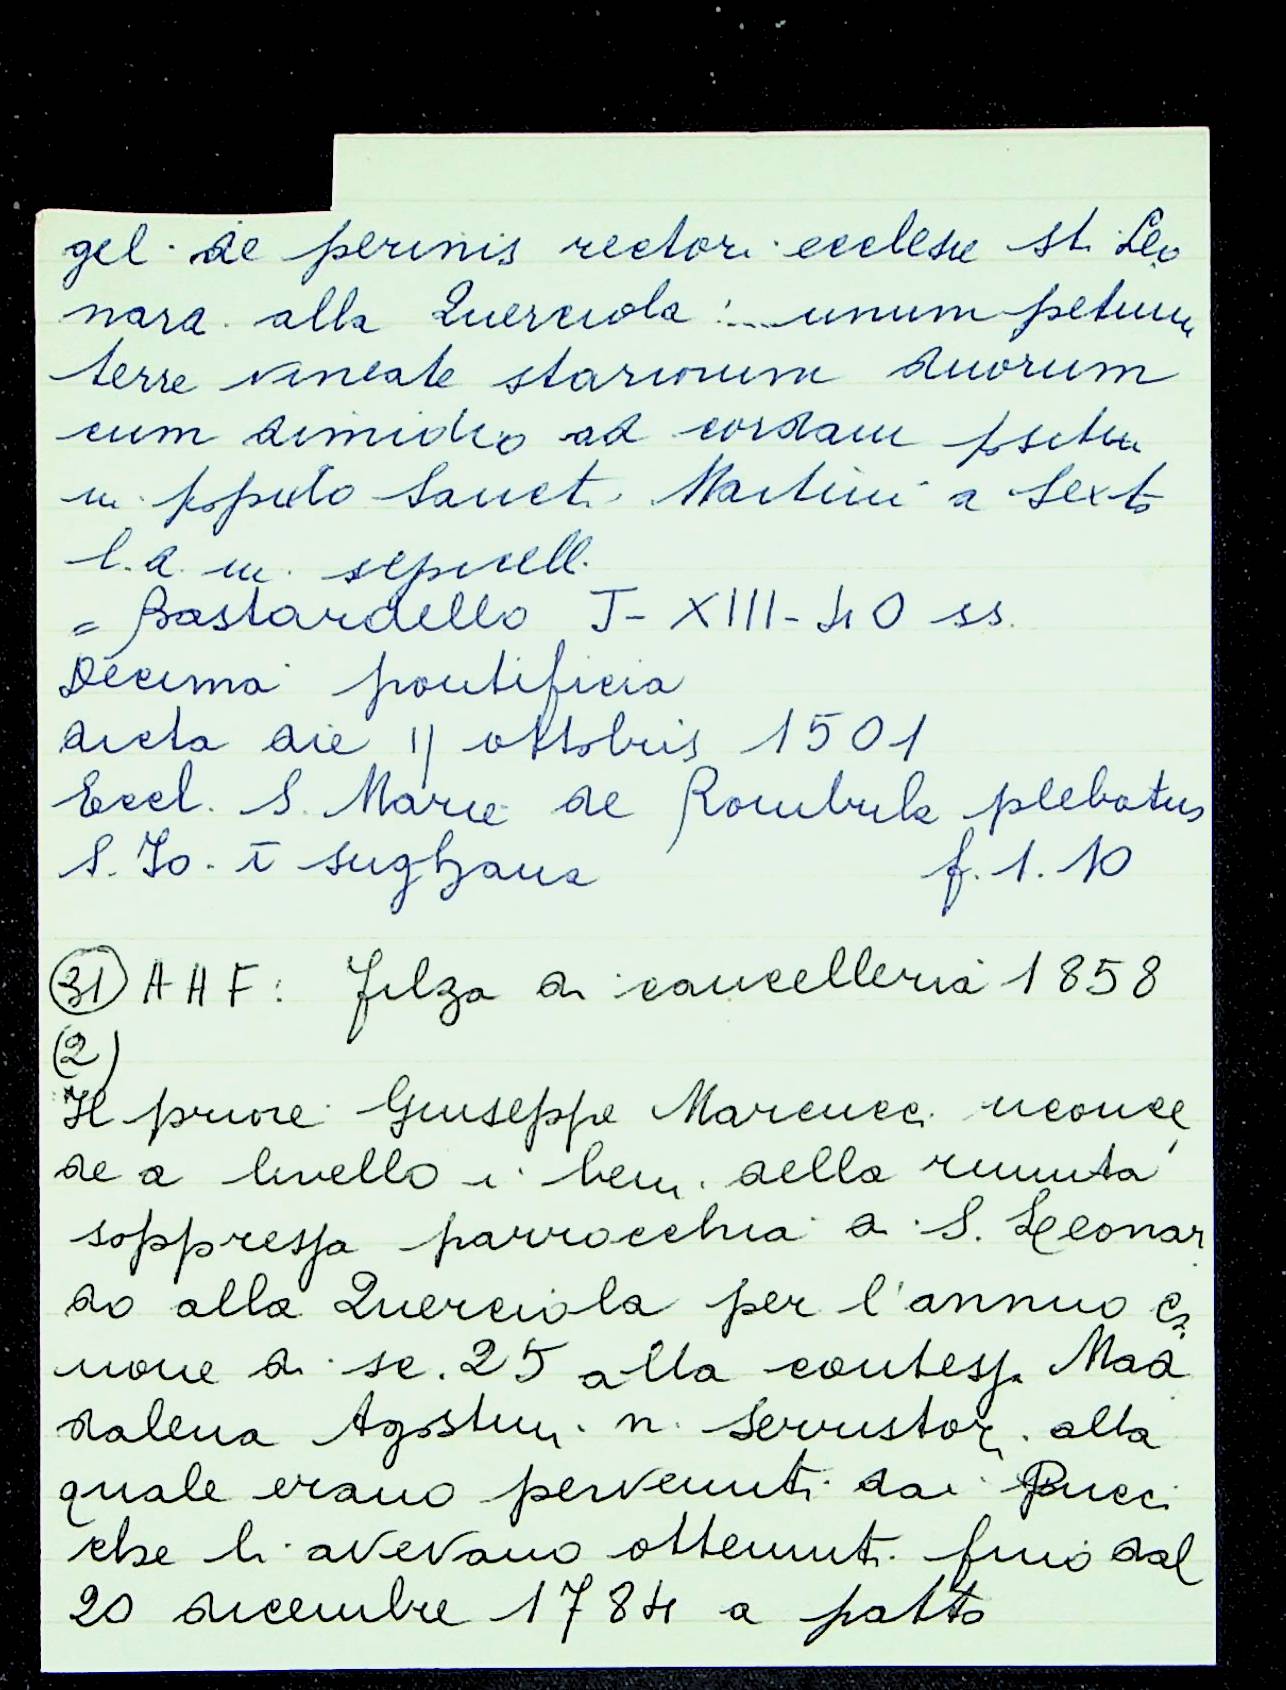 gel. de perinis rectori ecclesie st. Leo
nara. alla Querciola: ... unum petium
terre vineate stariorum duorum
cum dimidio ad cordam positum
in populo Sancti Martini a Sexto
l.d. in sepicell.
= Bastardello I-XIII-40 ss.
Decima pontificia
dicta die 11 ottobris 1501
Eccl. S. Marie de Rombrile plebatus
S. Jo. i sughana f. 1. 10
(31) AAF: Filza di cancelleria 1858
(2)
Il priore Giuseppe Marcucci riconce
de a livello i beni della riunita
soppressa parrocchia di S. Leonar
do alla Querciola per l'annuo ca
none di sc. 25 alla contess. Mad
dalena Agostini n. Serristori alla
quale erano pervenuti dai Pucci
che li avevano ottenuti fino dal
20 dicembre 1784 a patto